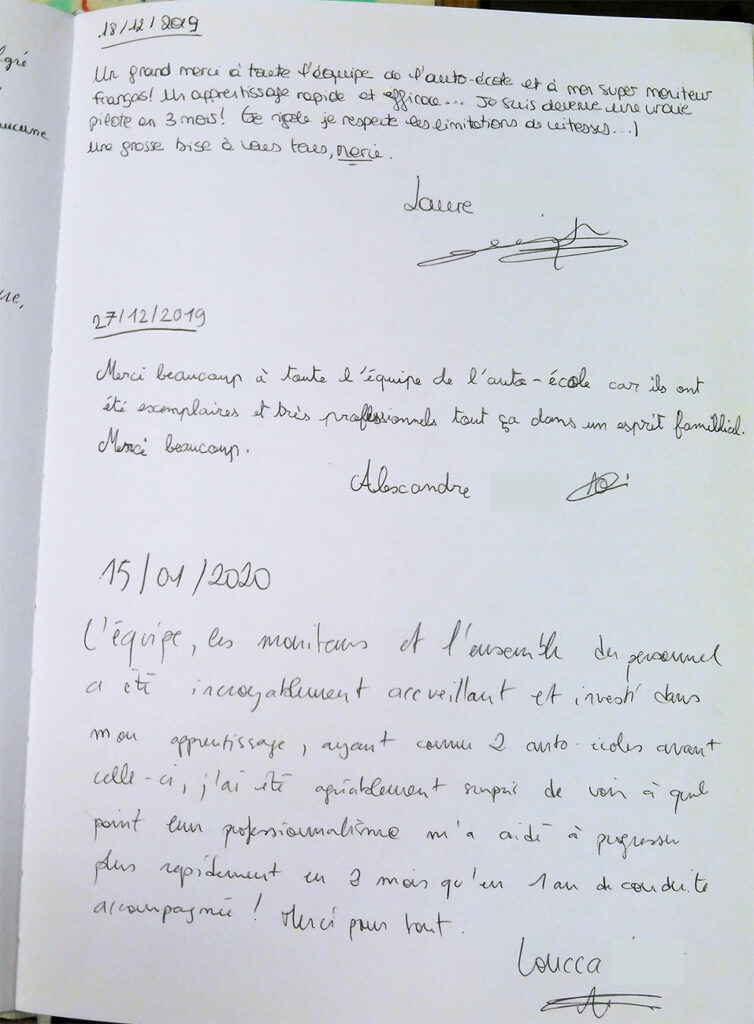 18/12/2019
Un grand merci à toute l'équipe de l'auto-école et à mon super moniteur
français! Un apprentissage rapide et efficace... Je suis devenue une vraie
pilote en 3 mois! (Je rigole je respecte les limitations de vitesses...)
Une grosse bise à vous tous, merci.
Laure
27/12/2019
Merci beaucoup à toute l'équipe de l'auto-école car ils ont
été exemplaires et très professionnels tout ça dans un esprit famillial.
Merci beaucoup.
Alexandre
15/01/2020
L'équipe, les moniteurs et l'ensemble du personnel
a été incroyablement accveillant et investi dans
mon apprentissage, ayant connu 2 auto-écoles avant
celle-ci, j'ai été agréablement surpris de voir à quel
point leur professionnalisme m'a aidé à progresser
plus rapidement en 2 mois qu'en 1 an de conduite
accompagnée! Merci pour tout.
Loucca
aucune